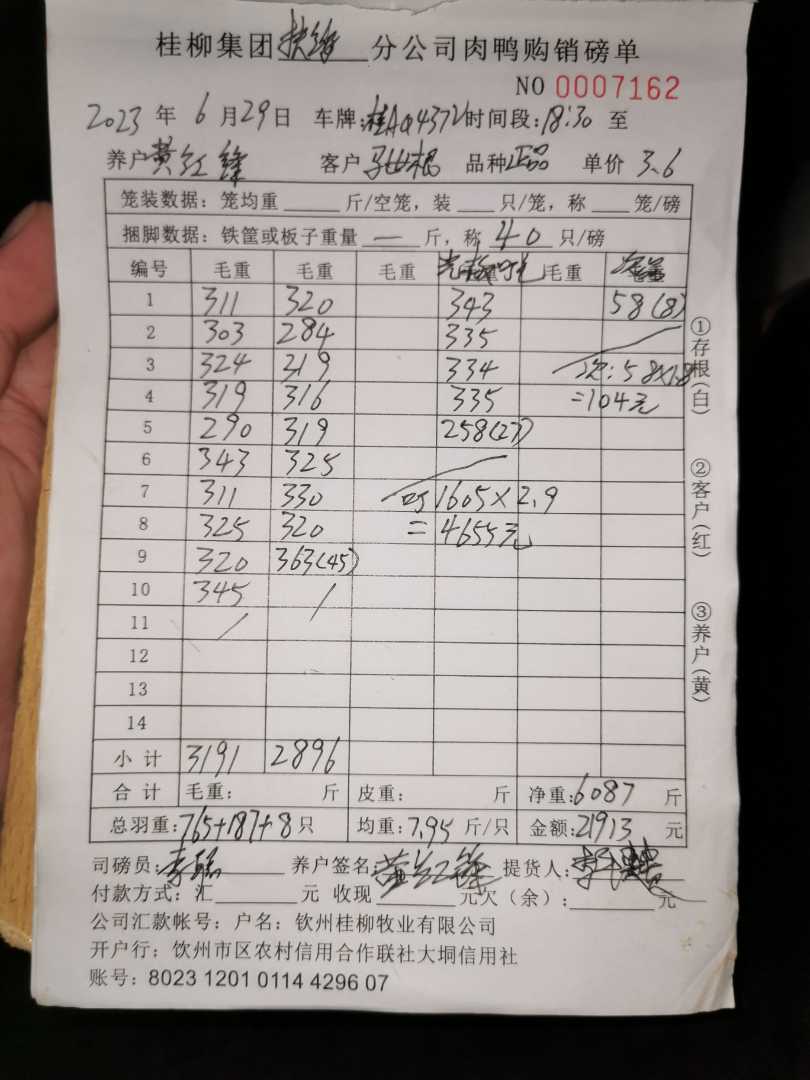 桂柳集团扶绥分公司肉鸭购销磅单
NO 0007162
2023年6月29日 车牌:桂AQ4372 时间段:18:30至
养户黄红锋 客户 品种正品 单价3.6
笼装数据:笼均重____斤/空笼,装___只/笼,称___笼/磅
捆脚数据:铁筐或板子重量 — 斤,称 40 只/磅
编号 毛重 毛重 毛重 毛重
1 311 320 343 58(8)
2 303 284 335
3 324 319 334 次:58×1.8
4 319 316 335 =104元
5 290 319 258(27)
6 343 325
7 311 330 1605×2.9
8 325 320 =4655元
9 320 363(45)
10 345 /
11 /
12
13
14
小计 3191 2896
合计 毛重: 斤 皮重: 斤 净重:6087 斤
总羽重:765+187+8只 均重:7.95斤/只 金额:21913元
司磅员: 养户签名:黄红锋 提货人:
付款方式:汇______元 收现______元欠(余):______元
公司汇款帐号:户名:钦州桂柳牧业有限公司
开户行:饮州市区农村信用合作联社大垌信用社
账号:8023 1201 0114 4296 07
①存根(白)
②客户(红)
③养户(黄)